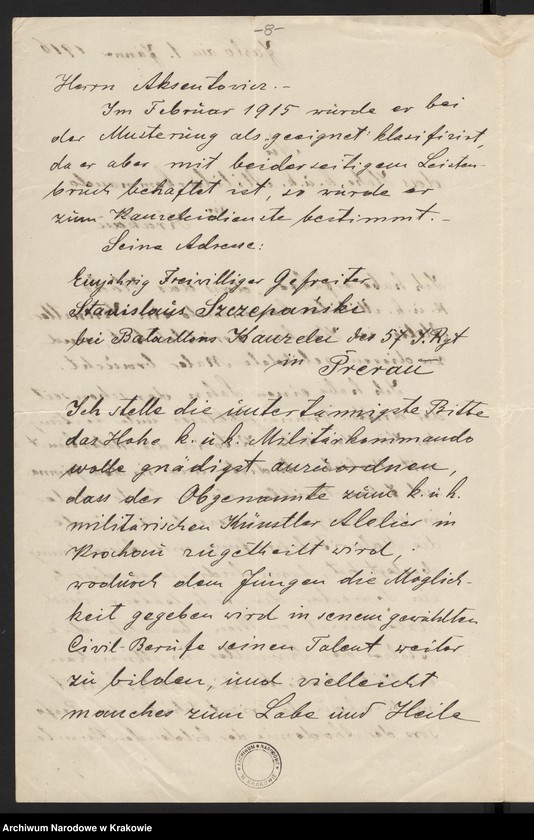 -8-
Herrn Aksentovicz.-
Im Februar 1915 wurde er bei
der Musterung als geeignet klasifizirt,
da er aber mit beiderseitigem Leisten-
bruch behaftet ist, so wurde er
zum Kanzleidienste bestimmt.-
Seine Adresse:
Einjährig Freivilliger Gefreiter
Stanislaus Szczepanski
bei Bataillons Kanzelei des 57 I. Rgt
in Prerau
Ich stelle die untertännigste Bitte
das Hohe k. u k. Militärkommando
wolle gnädigst anzuordnen,
dass der Obgenannte zum k. u k.
militärischen Künstler Atelier in
Krochau zugetheilt wird,
wodurch dem Jungen die Möglich-
keit gegeben wird in senem gewählten
Civil-Berufe seinen Talent weiter
zu bilden, und vielleicht
manches zum Lobe und Heile
ARCHIWUM NARODOWE W KRAKOWIE
Archiwum Narodowe w Krakowie